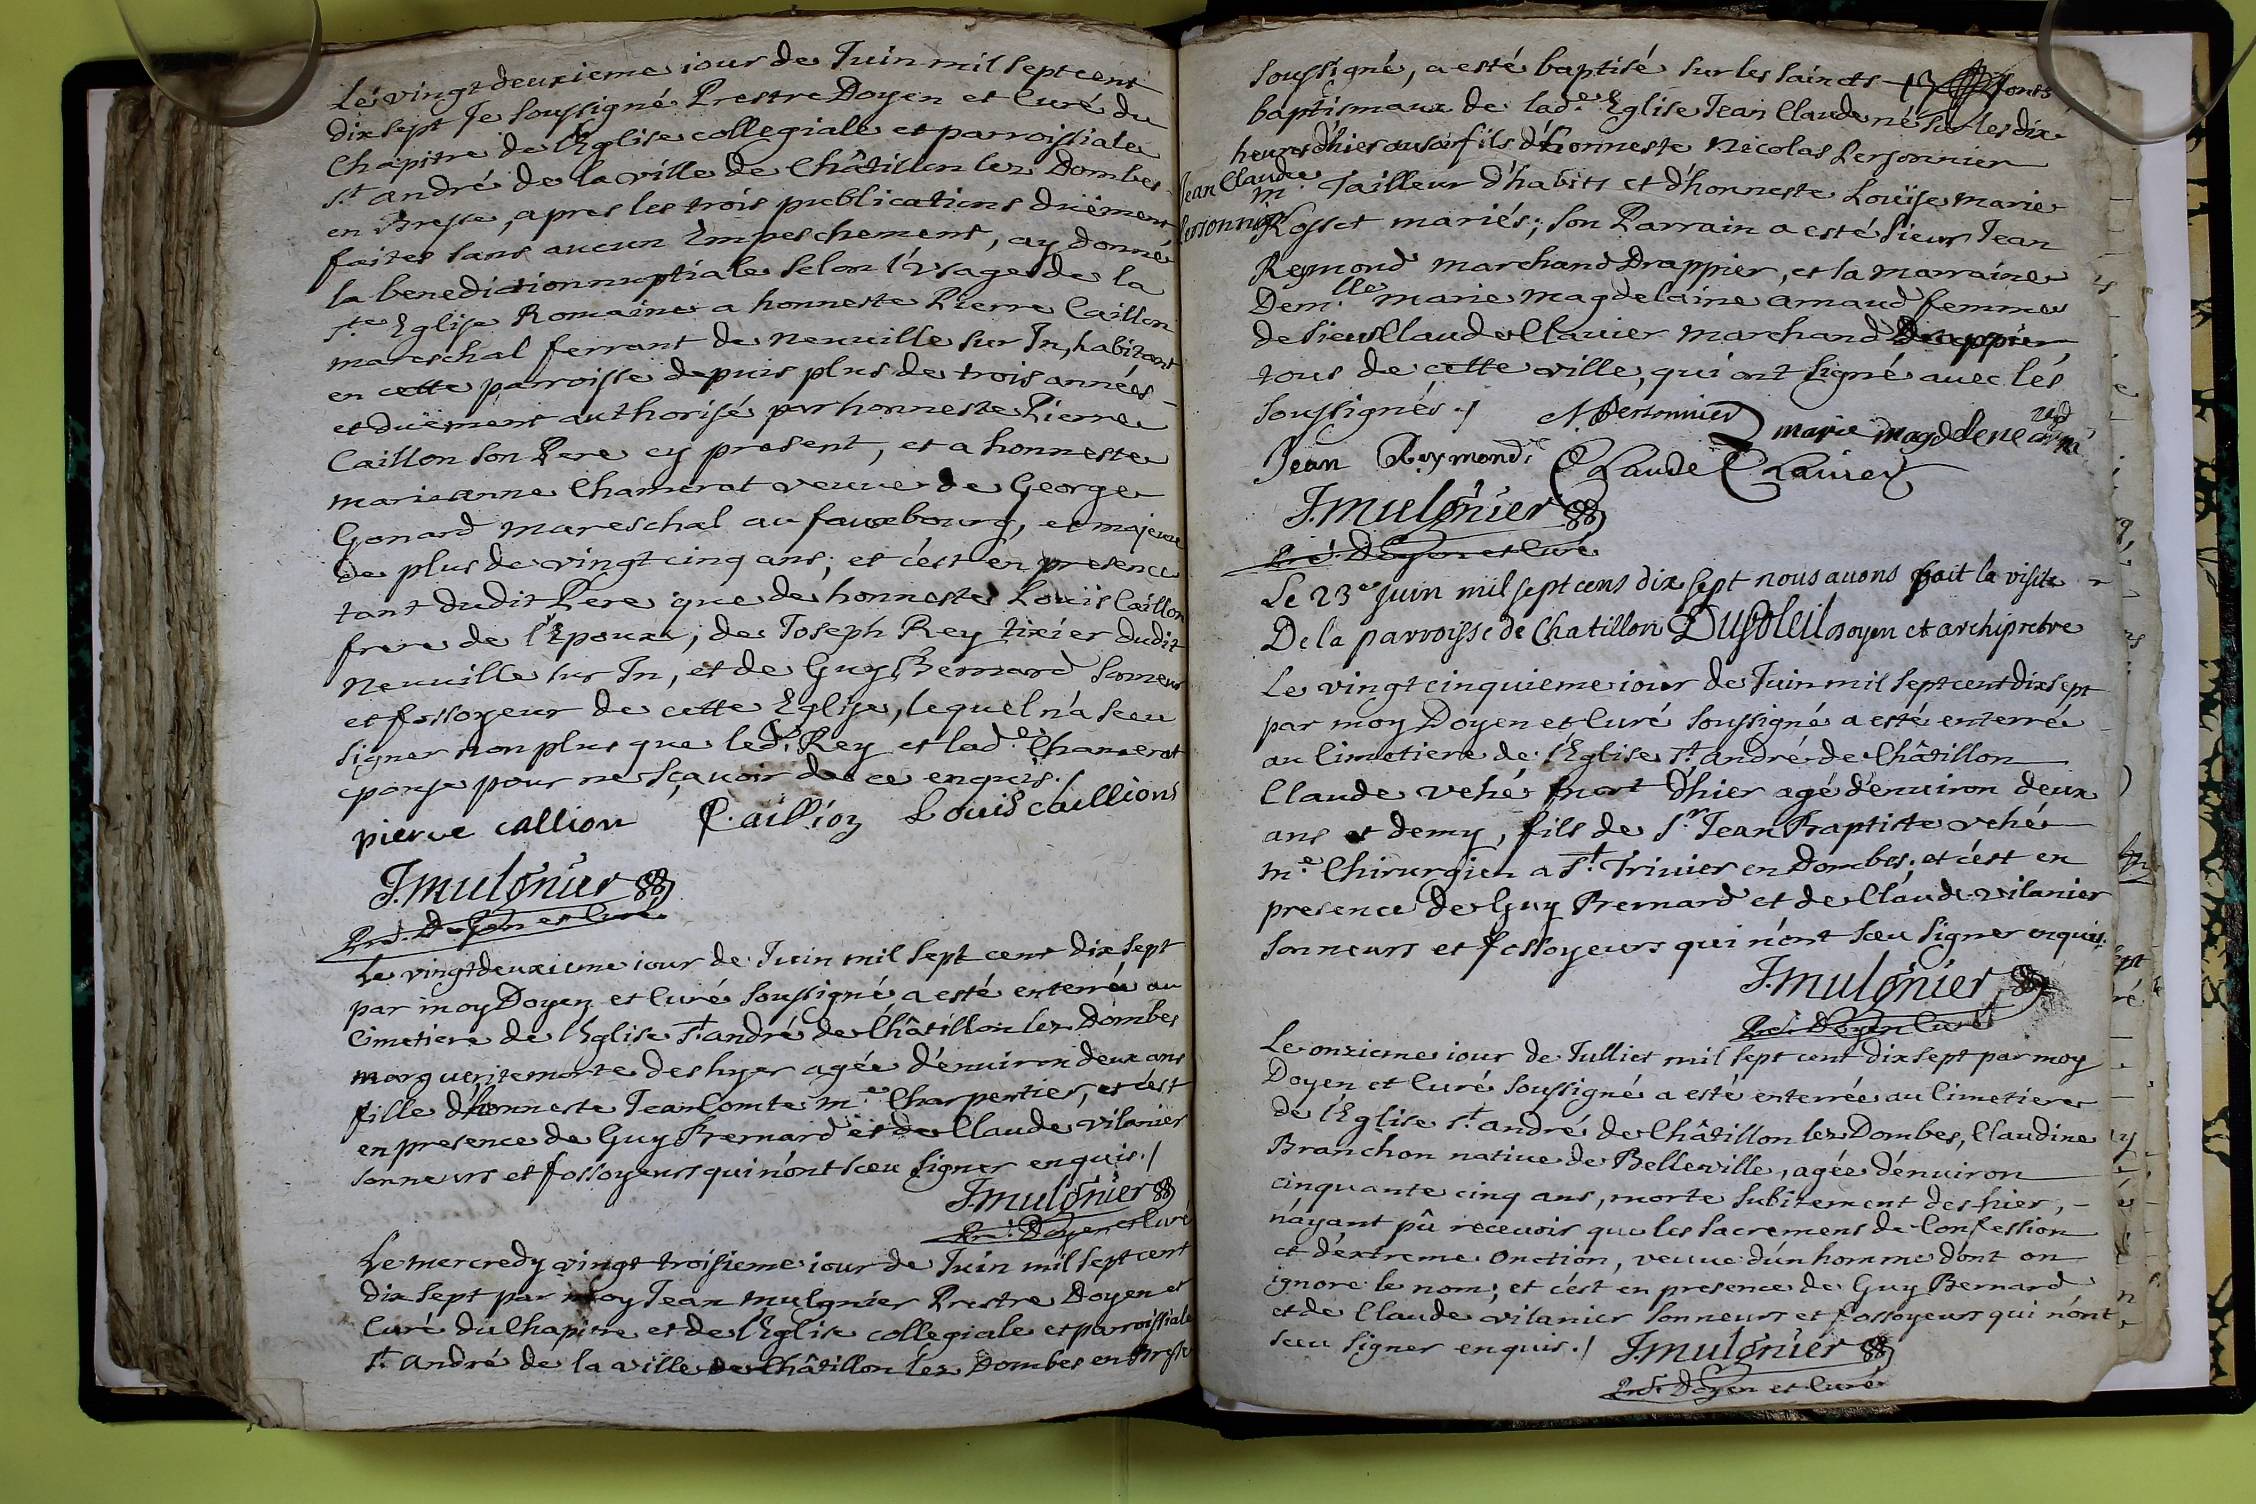 Le vingt deuxieme iour de Juin mil sept cent
dix sept Je soussigné Prestre Doyen et Curé du
Chapitre de l'Eglise collegiale et parroissiale
St. andré de la ville de Châtillon lez Dombes
en Bresse, apres les trois publications duëment
faites sans aucun Empeschement, ay donné
la benediction nuptiale selon l'vsage de la
ste Eglise Romaine a honneste Pierre Caillon
mareschal ferrant de neuuille sur In, habitant
en cette parroisse depuis plus de trois années
et duëment authorisé par honneste Pierre
Caillon son Pere cy present, et a honneste
marie anne Chamerat veuue de George
Gonard mareschal au fauxbourg, et majeure
de plus de vingt cinq ans; et c'est en presence
tant dudit Pere que de honneste Louïs Caillon
frere de l'Epoux, de Joseph Rey tixier dudit
Neuuille sur In, et de Guy Bernard sonneur
et fossoyeur de cette Eglise, lequel n'a sceu
signer non plus que led. Rey et lad.e Chamerat
pour ne sçauoir de ce enquis./
pierre callion P. aillion Louis caillion
J. mulgnier
Prê. Doyen et Curé
Le vingt deuxieme iour de Juin mil sept cent dix sept
par moy Doyen et Curé soussigné a esté enterrée au
Cimetiere de l'Eglise St. andré de Châtillon lez Dombes
marguerite morte des hyer agée d'enuiron deux ans
fille d'honneste Jean Comte m.e Charpentier, et c'est
en presence de Guy Bernard et de Claude vilanier
sonneurs et fossoyeurs qui n'ont sceu signer enquis./
J. mulgnier
Prê. Doyen et Curé
Le mercredy vingt troisieme iour de Juin mil sept cent
dix sept par moy Jean mulgnier Prestre Doyen et
Curé du Chapitre et de l'Eglise collegiale et parroissiale
St. andré de la ville de Châtillon lez Dombes en Bresse
soussigné, a esté baptisé sur les saincts fonts
baptismaux de lad.e Eglise Jean Claude né sur les dix
heures d'hier au soir fils d'honneste Nicolas Personnier
Jean Claude
Personnier
m.e Tailleur d'habits et d'honneste Loüise Marie
Rosset mariés; son Parrain a esté sieur Jean
Reymond marchand Drappier, et la marraine
Dem.lle marie magdelaine arnaud femme
de sieur Claude Clauier marchand Drappier
tous de cette ville, qui ont signé auec les
soussignés./ N. Personnier marie magdelene
Jean Reymond Claude Clauier
J. mulgnier
Prê. Doyen et Curé
Le 23e juin mil sept cens dix sept nous auons fait la visite
De la parroisse de Chatillon Dusoleil doyen et archipretre
Le vingt cinquieme iour de Juin mil sept cent dix sept
par moy Doyen et Curé soussigné a esté enterré
au Cimetiere de l'Eglise St. andré de Châtillon
Claude vehé mort d'hier agé d'enuiron deux
ans et demy, fils de Sr Jean Baptiste vehé
m.e Chirurgien a St. Triuier en Dombes; et c'est en
presence de Guy Bernard et de Claude vilanier
sonneurs et fossoyeurs qui n'ont sceu signer enquis.
J. mulgnier
Prê. Doyen Curé
Le onzieme iour de Julliet mil sept cent dix sept par moy
Doyen et Curé soussigné a esté enterrée au Cimetiere
de l'Eglise St. andré de Châtillon lez Dombes, Claudine
Branchon natiue de Belleville, agée d'enuiron
cinquante cinq ans, morte subitement des hier,
n'ayant pû receuoir que les sacremens de Confession
et d'extreme onction, veuue d'un homme dont on
ignore le nom; et c'est en presence de Guy Bernard
et de Claude vilanier sonneurs et fossoyeurs qui n'ont
sceu signer enquis./ J. mulgnier
Prê. Doyen et Curé